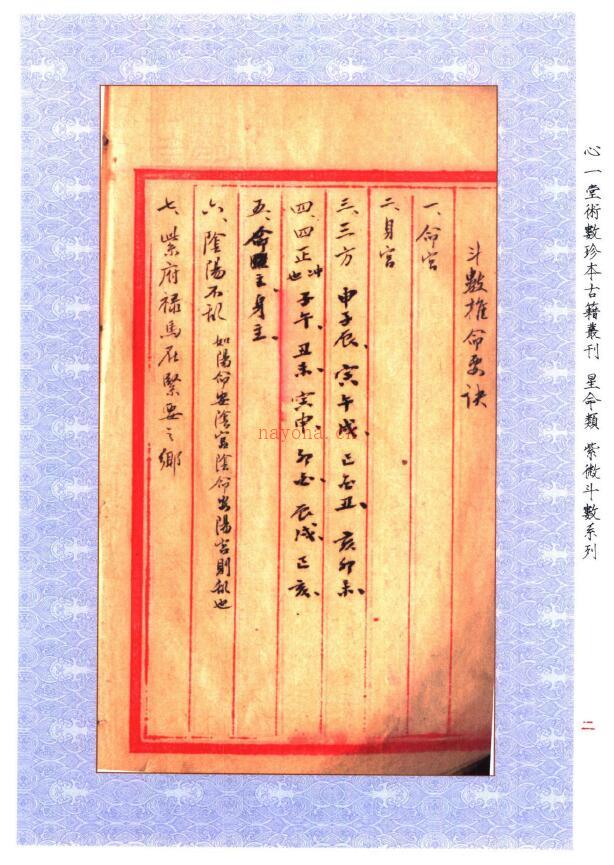 心一堂術數珍本古籍叢刊 星命類 紫微斗數系列
二
斗數推命要訣
一、命宮
二、身宮
三、三方 申子辰、寅午戌、巳酉丑、亥卯未、
四、四正 冲也 子午、丑未、寅申、卯酉、辰戌、巳亥、
五、命主身主、
六、陰陽不亂 如陽命安陰宮陰命安陽宮則亂也
七、紫府祿馬在緊要之鄉
nayona.cn